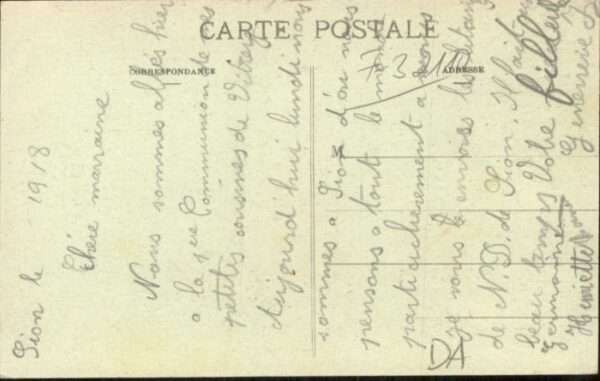 CARTE POSTALE
CORRESPONDANCE
ADRESSE
Sion le 1918
Chère marraine
Nous sommes allés hier
a la 1ere Communion de
petites cousines de
Aujourd'hui lundi nous
sommes a Sion d'où nous
pensons a tout le monde
particulièrement a vous
je vous envoies les
de N. D. de Sion. Il fait
beau temps Votre filleule
Germaine
Henriette
Genevieve
DA